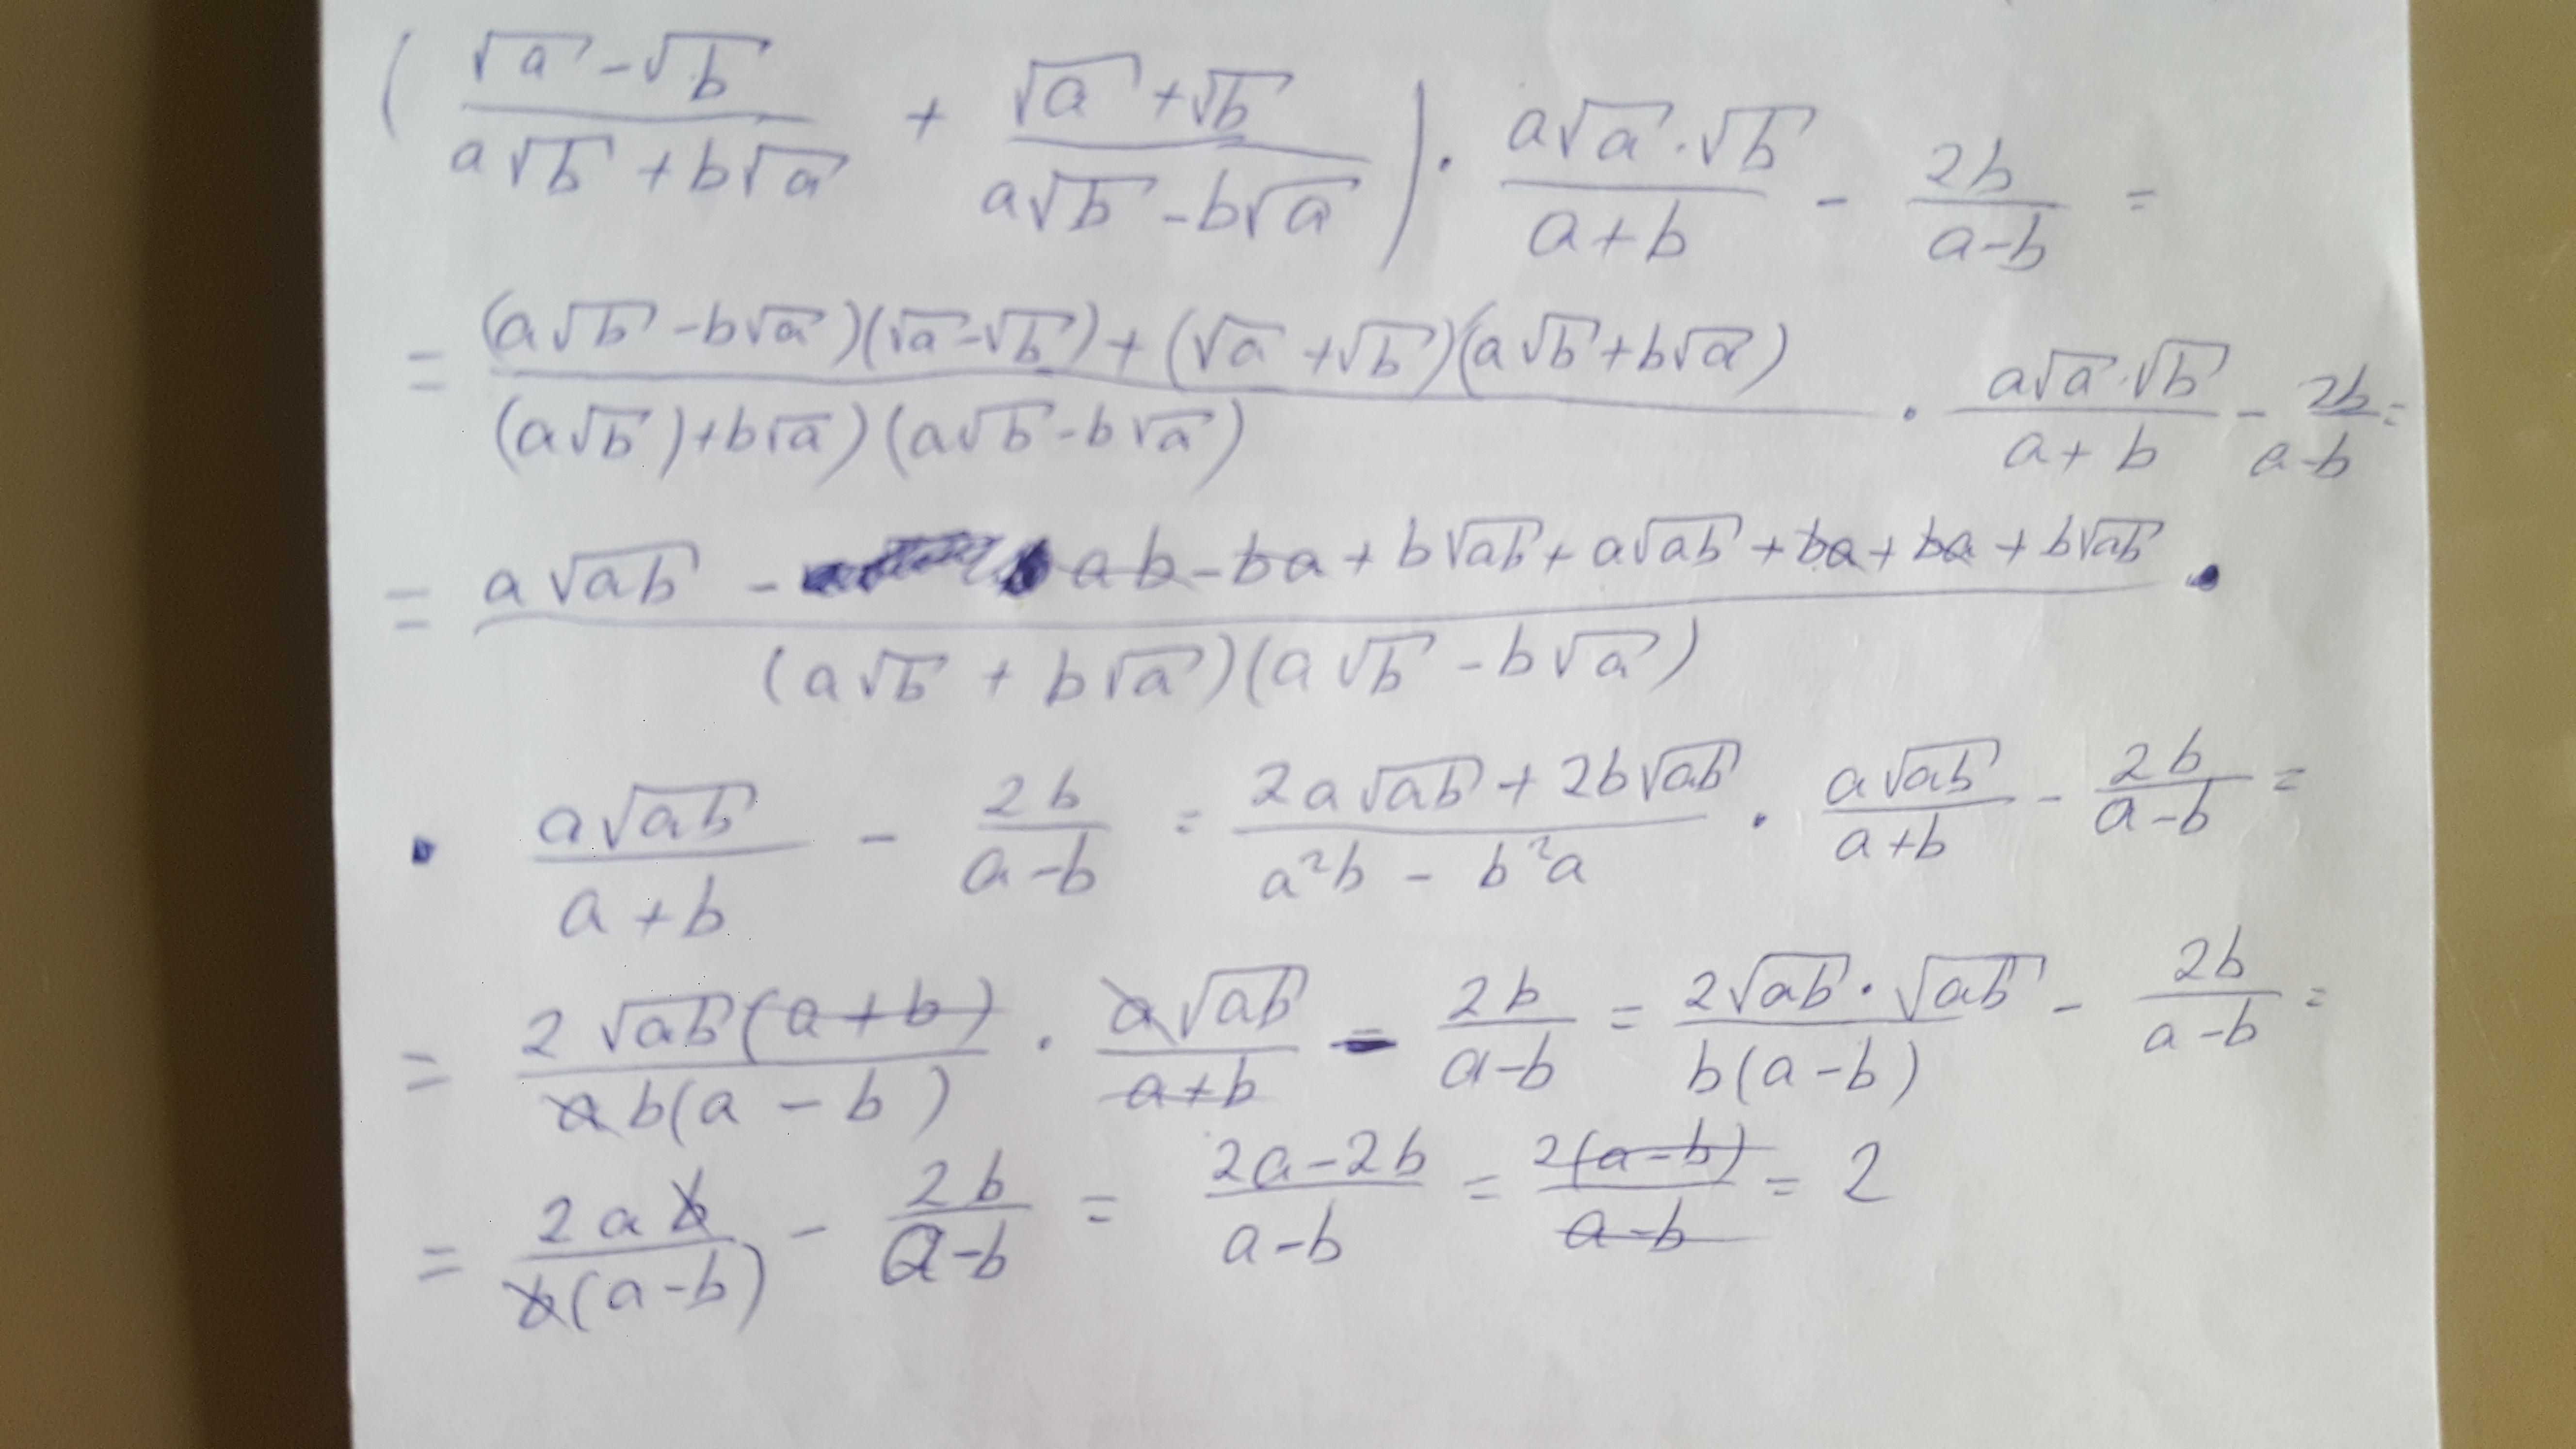 ( (√a - √b)/(a√b + b√a) + (√a + √b)/(a√b - b√a) ) · (a√a · √b)/(a+b) - 2b/(a-b) =
= ((a√b - b√a)(√a - √b) + (√a + √b)(a√b + b√a))/((a√b) + b√a)(a√b - b√a) · (a√a · √b)/(a+b) - 2b/(a-b) =
= (a√ab - ab - ba + b√ab + a√ab + ba + ba + b√ab)/((a√b + b√a)(a√b - b√a)) ·
· (a√ab)/(a+b) - 2b/(a-b) = (2a√ab + 2b√ab)/(a²b - b²a) · (a√ab)/(a+b) - 2b/(a-b) =
= (2√ab(a+b))/(ab(a-b)) · (a√ab)/(a+b) - 2b/(a-b) = (2√ab · √ab)/(b(a-b)) - 2b/(a-b) =
= 2ab/(b(a-b)) - 2b/(a-b) = (2a-2b)/(a-b) = 2(a-b)/(a-b) = 2